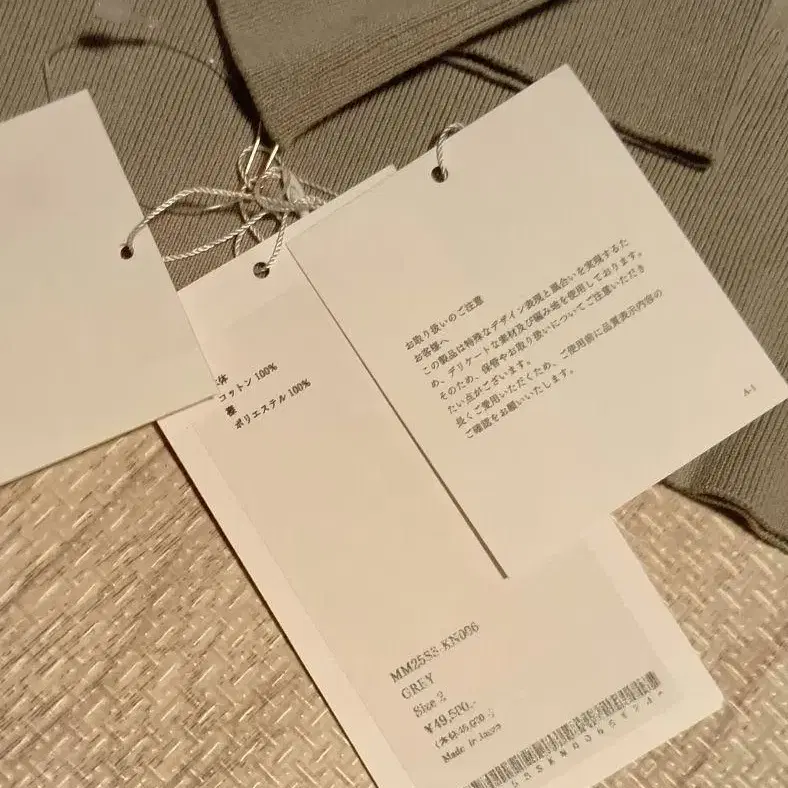 お取り扱いのご注意
お客様へ
この製品は特殊なデザイン表現と風合いを実現するた
め、デリケートな素材及び編み地を使用しております。
そのため、保管やお取り扱いについてご注意いただき
たい点がございます。
長くご愛用いただくため、ご使用前に品質表示内容の
ご確認をお願いいたします。
A-1
体
コットン 100%
ポリエステル 100%
MM25S3-KN006
GREY
Size 2
¥49,500.-
(本体45,000.-)
Made in Japan